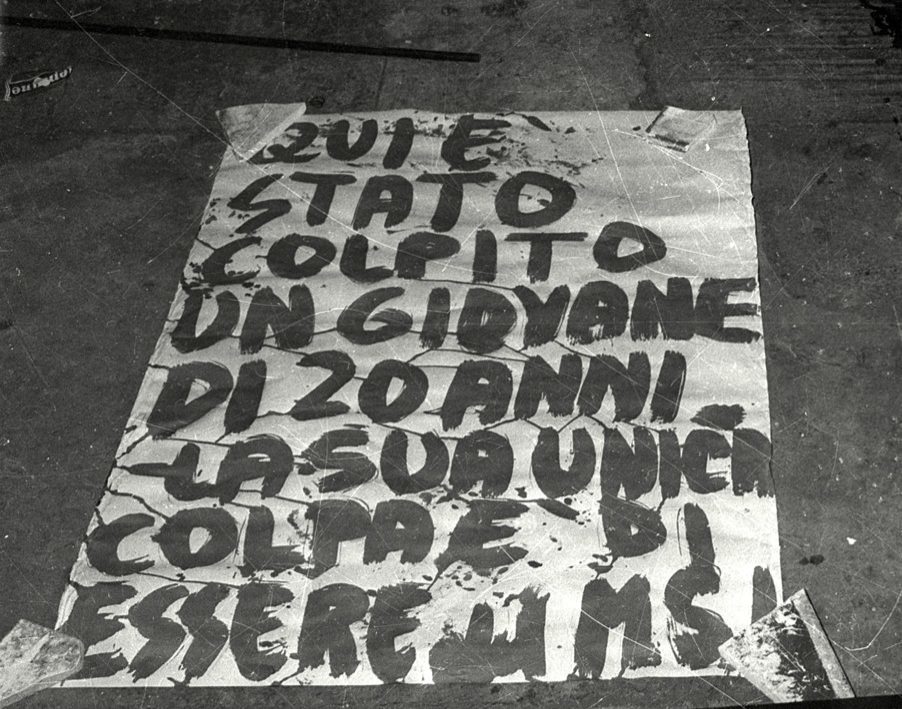 QUI E'
STATO
COLPITO
UN GIOVANE
DI 20 ANNI
LA SUA UNICA
COLPA E' DI
ESSERE MSI